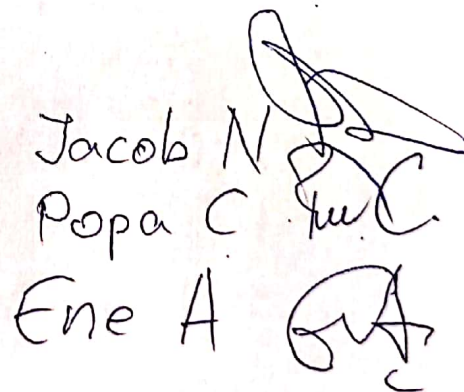 Jacob N
Popa C
Ene A